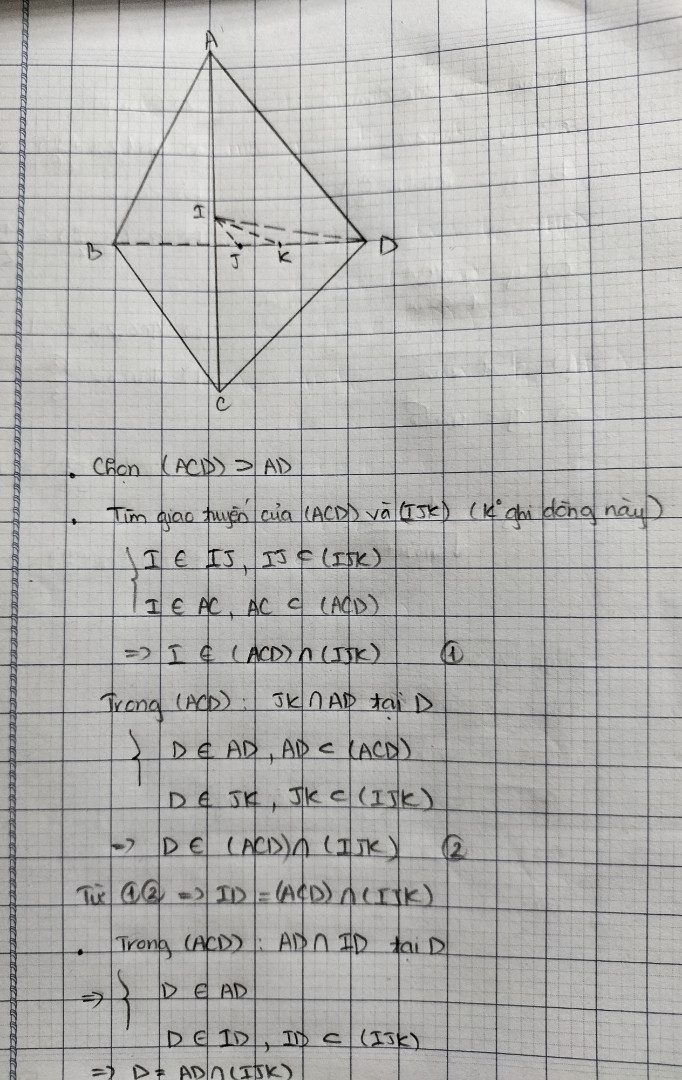 A
I
B
J
K
D
C
. Chọn (ACD) ⊃ AD
. Tìm giao tuyến của (ACD) và (IJK) (K° ghi dòng này)
{ I ∈ IJ, IJ ⊂ (IJK)
I ∈ AC, AC ⊂ (ACD)
=> I ∈ (ACD) ∩ (IJK) ①
Trong (ACD): JK ∩ AD tại D
{ D ∈ AD, AD ⊂ (ACD)
D ∈ JK, JK ⊂ (IJK)
=> D ∈ (ACD) ∩ (IJK) ②
Từ ①② => ID = (ACD) ∩ (IJK)
. Trong (ACD): AD ∩ ID tại D
=> { D ∈ AD
D ∈ ID, ID ⊂ (IJK)
=> D = AD ∩ (IJK)